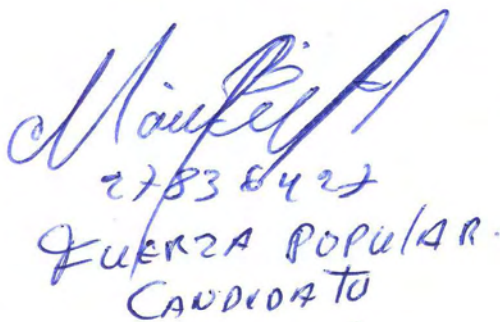 27838427
FUERZA POPULAR.
CANDIDATO